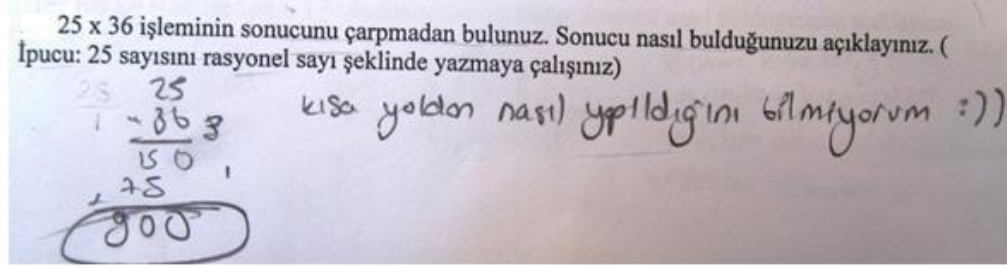 25 x 36 işleminin sonucunu çarpmadan bulunuz. Sonucu nasıl bulduğunuzu açıklayınız. (
İpucu: 25 sayısını rasyonel sayı şeklinde yazmaya çalışınız)
25
36
150
+ 75
900
kısa yoldan nasıl yapıldığını bilmiyorum :))